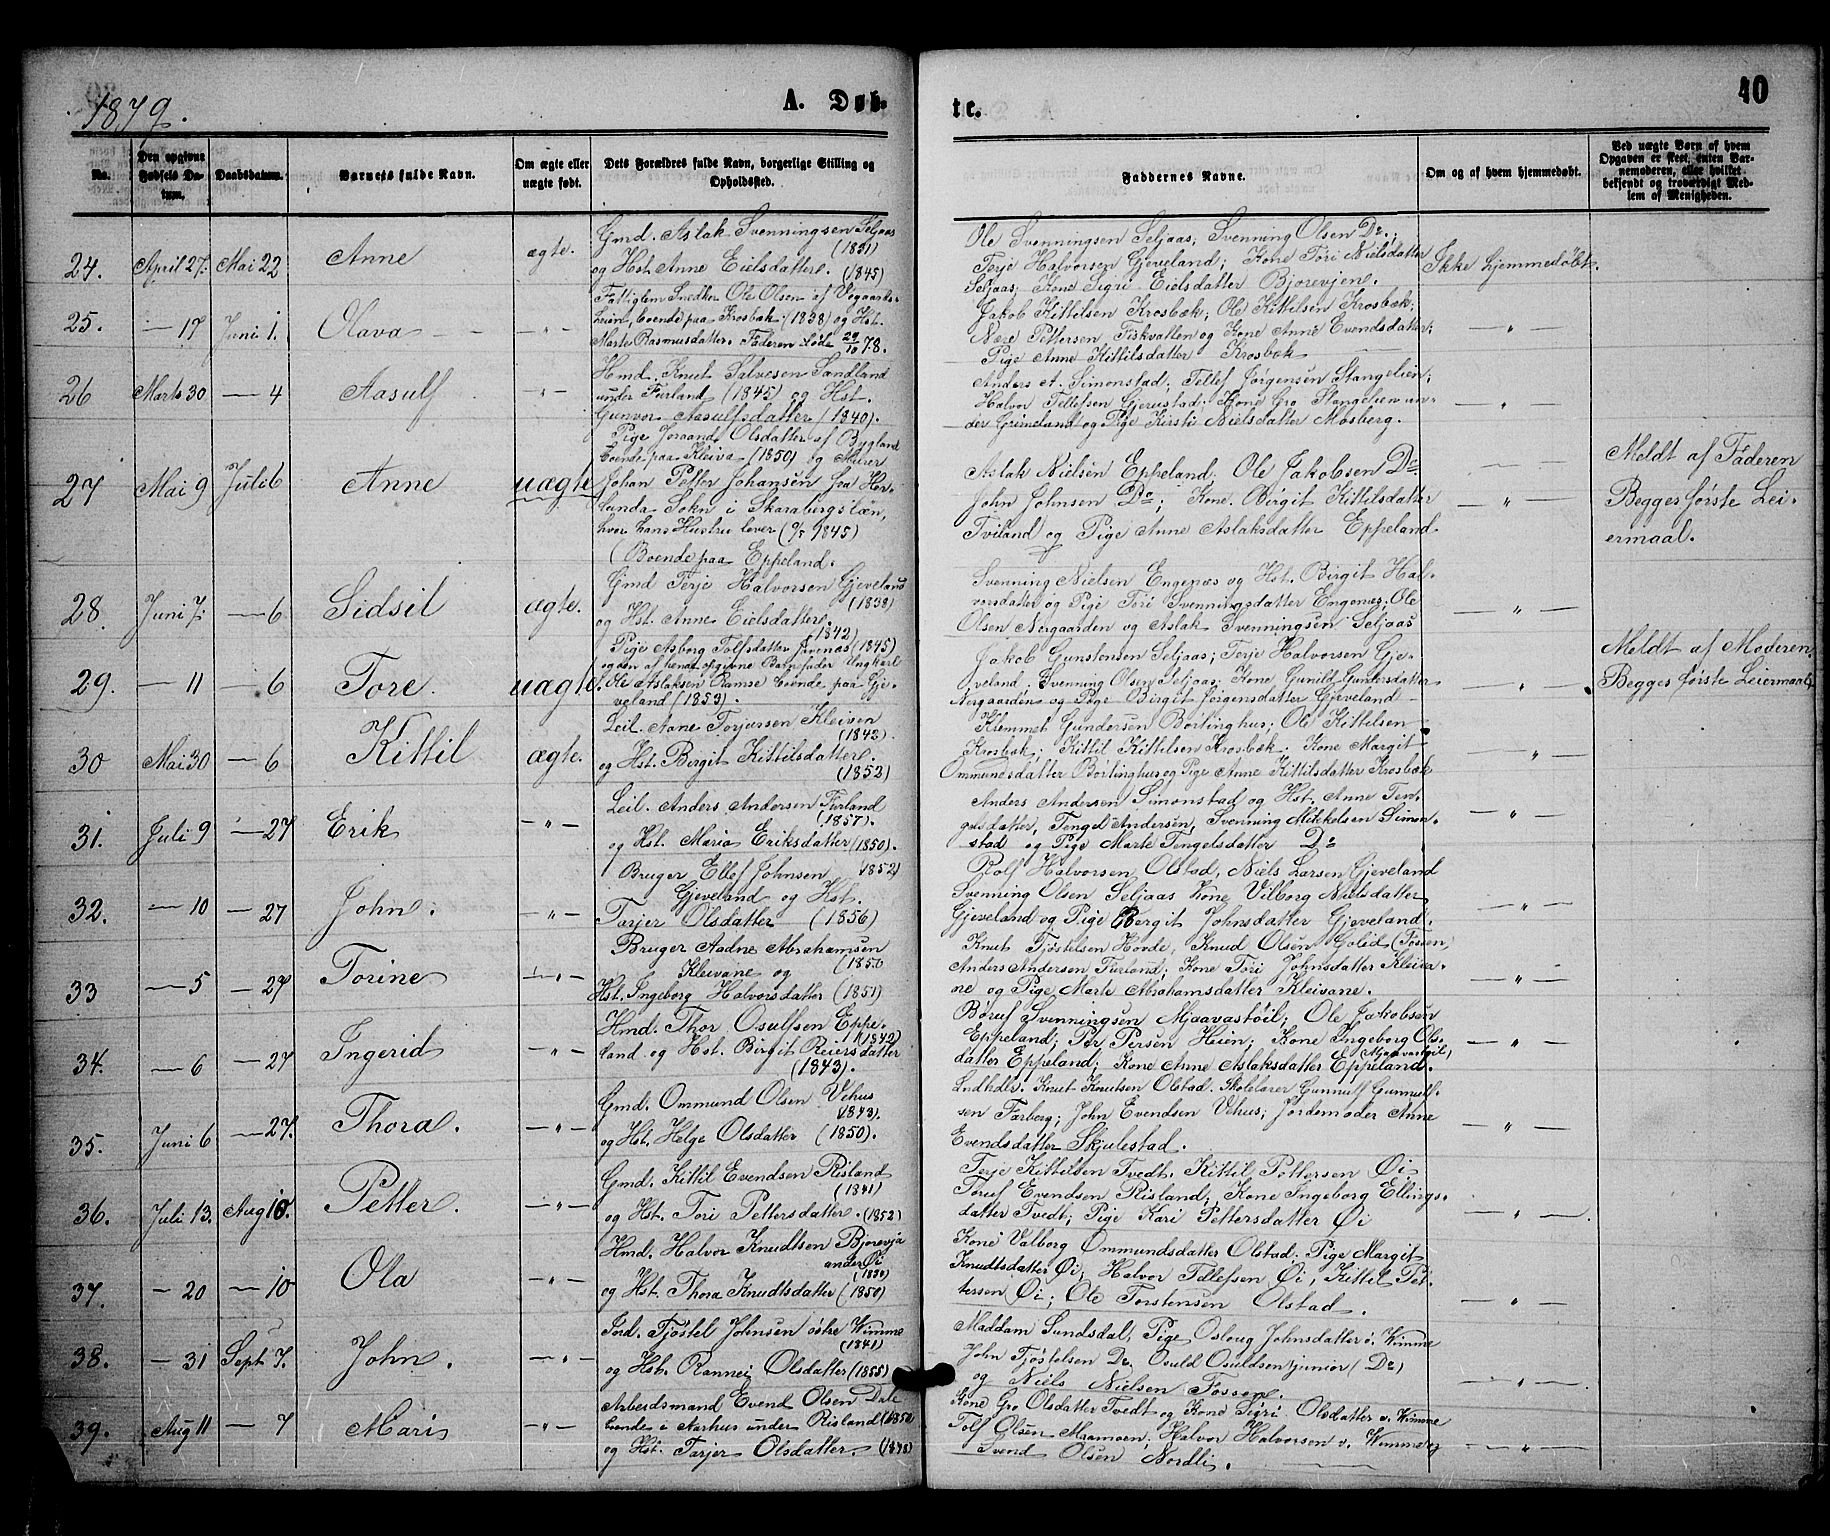 1879.
A. Døb-
te.
40
No.
Den opgivne Fødsels Datum.
Daabsdatum.
Barnets fulde Navn.
Om ægte eller uægte født.
Dets Forældres fulde Navn, borgerlige Stilling og Opholdssted.
Faddernes Navne.
Om og af hvem hjemmedøbt.
Ved uægte Børn af hvem Opgaven er skeet, enten Barnemoderen, eller hvilket bekjendt og troværdigt Medlem af Menigheden.
24. April 27. Mai 22 Anne ægte.
Gmd. Aslak Svenningsen Seljaas
(1851)
og Hst. Anne Eielsdatter. (1845)
Ole Svenningsen Seljaas; Svenning Olsen Do.;
Terje Halvorsen Gjeveland; Kone Tori Nielsdatter
Seljaas; Kone Sigri Eielsdatter Bjorevjen.
Ikke hjemmedøbt.
25. — 17 Juni 1. Olava — " —
Fattiglem Snedker Ole Olsen af Vegaards-
heien, boende paa Krosbæk (1838) og Hst.
Marte Rasmusdatter. Faderen døde 29/10 78.
Jakob Kittelsen Krosbæk; Ole Kittilsen Krosbæk;
Nære Pettersen, Fiskvatten og Kone Anne Evendsdatter;
Pige Anne Kittilsdatter Krosbæk
— " —
26 Marts 30 — 4 Aasulf — " —
Hmd. Knut Salvesen Sandland
under Furland (1845) og Hst.
Gunvor Aasulfsdatter (1840).
Anders A. Simonstad; Tellef Jørgensen Stangelien;
Halvor Tellefsen Gjerustad; Kone Gro Stangelien un-
der Grimeland og Pige Kirsti Nielsdatter Mosberg.
— " —
27 Mai 9 Juli 6 Anne uægte
Pige Joraand Olsdatter af Bygland
boende paa Kleiva (1850) og Murer
Johan Petter Johansen fra Her-
lunda Sokn i Skarabergslæn,
hvor hans Hustru lever (9/5 1845)
(Boende paa Eppeland.
Aslak Nielsen Eppeland; Ole Jakobsen Do
John Johnsen Do; Kone Birgit Kittilsdatter
Tviland og Pige Anne Aslaksdatter Eppeland
— " —
Meldt af Faderen
Begges første Lei-
ermaal.
28. Juni 7. — 6 Sidsil ægte.
Gmd Terje Halvorsen Gjeveland
(1838)
og Hst. Anne Eielsdatter.
(1842)
Svenning Nielsen Engenæs og Hst. Birgit Hal-
vorsdatter og Pige Tori Svenningsdatter Engenæs; Ole
Olsen Nergaarden og Aslak Svenningsen Seljaas
— " —
29. — 11 — 6 Tore. uægte
Pige Asborg Tolfsdatter Grenæs (1845)
og den af hende opgivne Barnefader Ungkarl
Ole Aslaksen Ramse boende paa Gje-
veland (1853).
Jakob Gunstensen Seljaas; Terje Halvorsen Gje-
veland; Svenning Olsen Seljaas; Kone Gunild Gundersdatter
Nergaarden og Pige Birgit Jørgensdatter Gjeveland
— " —
Meldt af Moderen.
Begges første Leiermaal
30 Mai 30 — 6 Kittil ægte.
Leil. Aane Torjussen Kleiven
(1843)
og Hst. Birgit Kittilsdatter.
(1852)
Klemmet Gundersen Børlinghus; Ole Kittilsen
Krosbæk; Kittil Kittilsen Krosbæk. Kone Margit
Ommundsdatter Børlinghus og Pige Anne Kittilsdatter Krosbæk
— " —
31. Juli 9 — 27 Erik — " —
Leil. Anders Andersen Furland
(1857).
og Hst. Maria Eriksdatter (1850).
Anders Andersen Simonstad og Hst. Anne Ten-
gelsdatter, Tengel Andersen, Svenning Mikkelsen Simon-
stad og Pige Marte Tengelsdatter Do
— " —
32. — 10 — 27 John. — " —
Bruger Ellef Johnsen (1852)
Gjeveland og Hst.
Tarjer Olsdatter (1856)
Rolf Halvorsen Olstad, Niels Larsen Gjeveland
Svenning Olsen Seljaas Kone Vilborg Nielsdatter
Gjeveland og Pige Bergit Johnsdatter Gjeveland.
— " —
33 — 5 — 27 Torine — " —
Bruger Aadne Abrahamsen
Kleivane og (1856
Hst. Ingeborg Halvorsdatter (1851)
Knut Tjøstelsen Hovde, Knud Olsen Golid (Fossen,
Anders Andersen Furland; Kone Tori Johnsdatter Kleiva-
ne og Pige Marte Abrahamsdatter Kleivane.
— " —
34. — 6 — 27 Ingerid — " —
Hmd. Thor Osulfsen Eppe-
(1842)
land og Hst. Birgit Reiersdatter
(1843).
Børuf Svenningsen Mjaavastøil; Ole Jakobsen
Eppeland; Per Persen Heien; Kone Ingeborg Ols-
datter Eppeland; Kone Anne Aslaksdatter Eppeland
— " —
35. Juni 6 — 27. Thora. — " —
Gmd. Ommund Olsen Vehus
1843).
og Hst. Helge Olsdatter (1850).
Lndhdlr. Knut Knutsen Olstad. Skolelærer Gunnulf Gunnulf-
sen Farberg; John Evendsen Vehus; Jordemoder Anne
Evendsdatter Skjulestad.
— " —
36. Juli 13. Aug 10. Petter. — " —
Gmd. Kittil Evendsen Risland
(1841)
og Hst. Tori Pettersdatter. (1852)
Terje Kittilsen Tvedt. Kittil Pettersen Øi
Toruf Evendsen Risland; Kone Ingeborg Ellings-
datter Tvedt; Pige Kari Pettersdatter Øi
— " —
37. — 20 — 10 Ola — " —
Hmd. Halvor Knudtsen Bjorevja
under Øi
(1850)
og Hst. Thora Knudtsdatter (1850)
Kone Valborg Ommundsdatter Olstad. Pige Margit
Knudtsdatter Øi; Halvor Tellefsen Øi, Kittil Pet-
tersen Øi; Ole Torstensen Olstad.
— " —
38. — 31 Sept 7. John. — " —
Ind. Tjøstel Johnsen østre Wimme
(1841)
og Hst. Rannei Olsdatter (1855)
Maddam Sundsdal, Pige Oslaug Johnsdatter ø. Wimme
John Tjøstelsen Do, Osuld Osuldsen junior (Do)
og Niels Nielsen Fossene.
— " —
39. Aug 11 — 7 Mari — " —
Arbeidsmand Evend Olsen Dale
boende i Aarhus under Risland (1852
og Hst. Tarjer Olsdatter. (1848)
Kone Gro Olsdatter Tvedt og Kone Sigri Olsdatter v. Wimme
Tolf Olsen Maamoen; Halvor Halvorsen v. Wimme og
Svend Olsen Nordli.
— " —